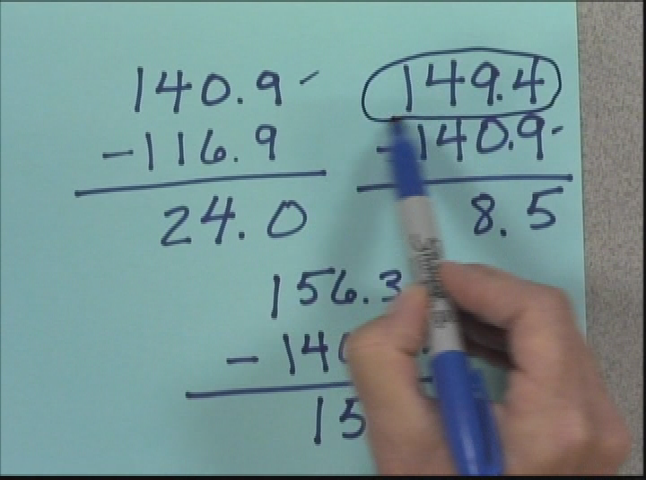 140.9
-116.9
24.0
149.4
-140.9
8.5
156.3
-140
15